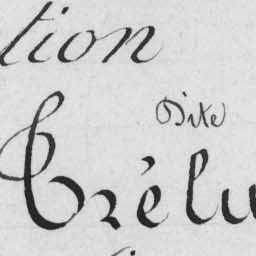 tion
Dite
Trélu